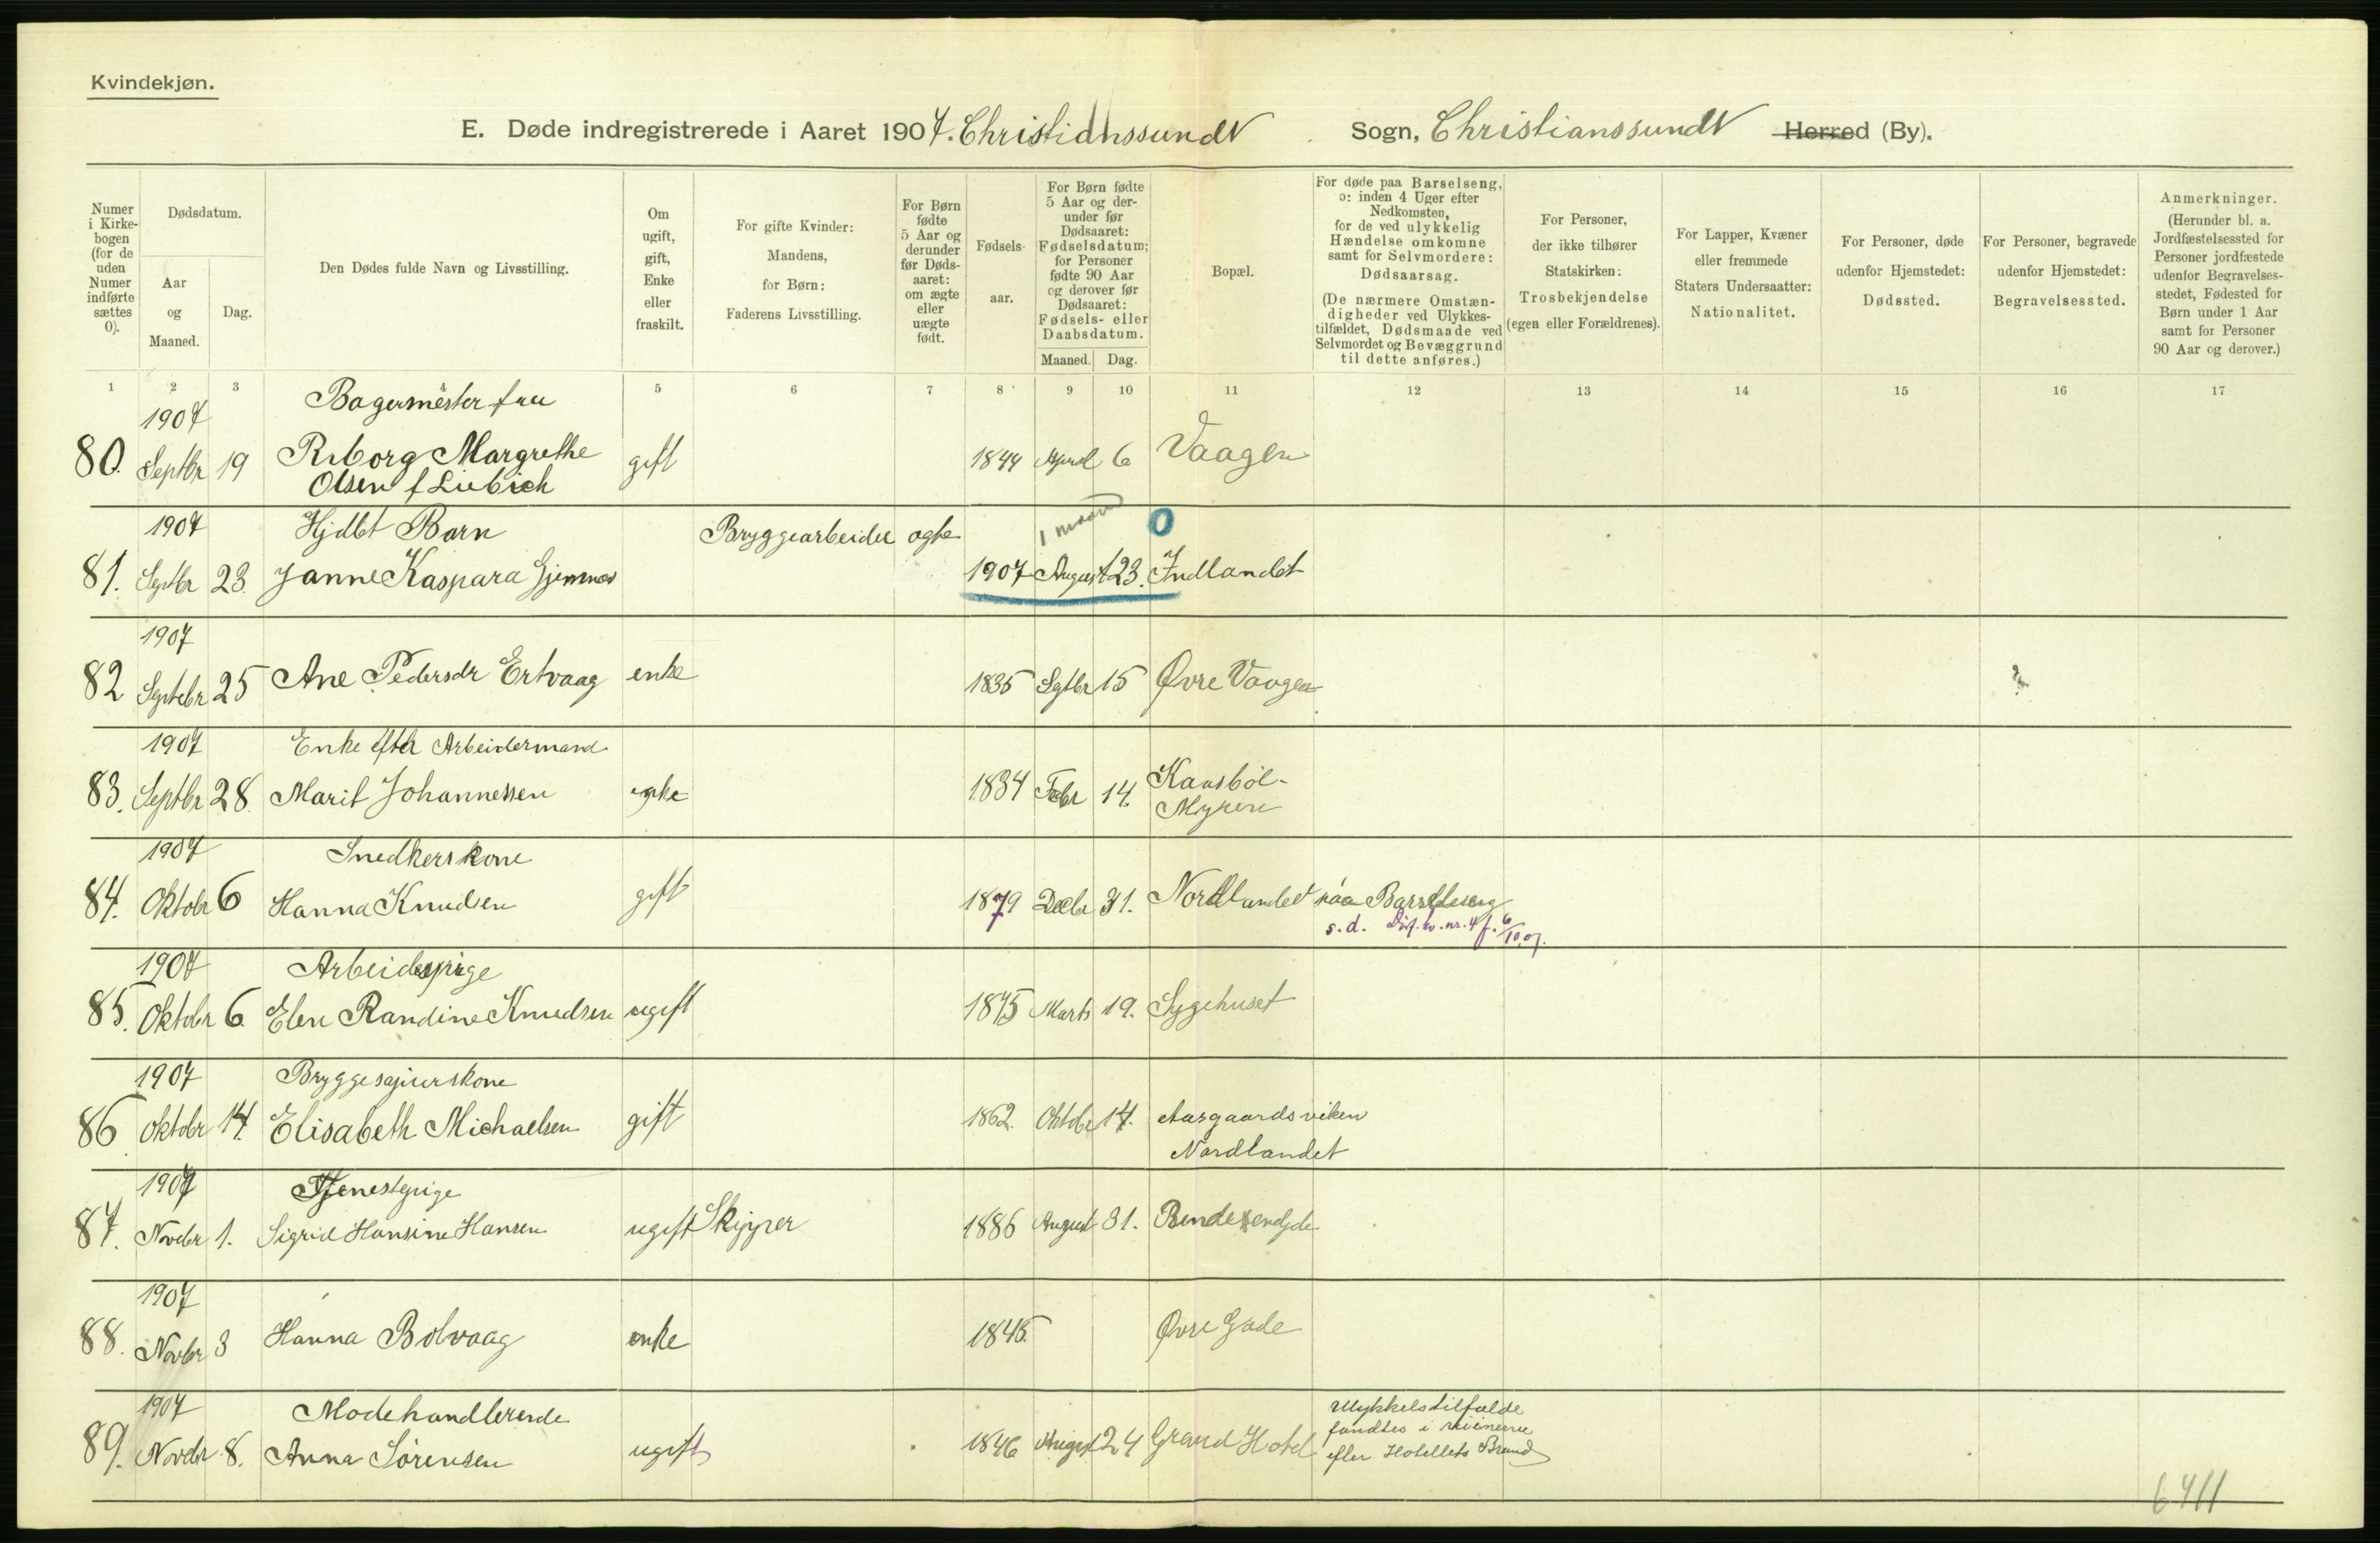 Kvindekjøn.
E. Døde indregistrerede i Aaret 1907. Christianssund Sogn, Christianssund Herred (By).
Numer i Kirkebogen (for de uden Numer indførte sættes 0).
Dødsdatum.
Aar og Maaned.
Dag.
Den Dødes fulde Navn og Livsstilling.
Om ugift, gift, Enke eller fraskilt.
For gifte Kvinder: Mandens, for Børn: Faderens Livsstilling.
For Børn fødte 5 Aar og derunder før Dødsaaret: om ægte eller uægte født.
Fødselsaar.
For Børn fødte 5 Aar og derunder før Dødsaaret: Fødselsdatum; for Personer fødte 90 Aar og derover før Dødsaaret: Fødsels- eller Daabsdatum.
Maaned. Dag.
Bopæl.
For døde paa Barselseng, ɔ: inden 4 Uger efter Nedkomsten, for de ved ulykkelig Hændelse omkomne samt for Selvmordere: Dødsaarsag.
(De nærmere Omstændigheder ved Ulykkestilfældet, Dødsmaade ved Selvmordet og Bevæggrund til dette anføres.)
For Personer, der ikke tilhører Statskirken: Trosbekjendelse (egen eller Forældrenes).
For Lapper, Kvæner eller fremmede Staters Undersaatter: Nationalitet.
For Personer, døde udenfor Hjemstedet: Dødssted.
For Personer, begravede udenfor Hjemstedet: Begravelsessted.
Anmerkninger.
(Herunder bl. a. Jordfæstelsessted for Personer jordfæstede udenfor Begravelsesstedet, Fødested for Børn under 1 Aar samt for Personer 90 Aar og derover.)
1 2 3 4 5 6 7 8 9 10 11 12 13 14 15 16 17
1907 Bagermester fru
80. Septbr 19 Riborg Margrethe gift 1844 April 6 Vaagen
Olsen f Liebich
1907 Hjdbt Barn Bryggearbeider ægte 1 maaned 0
81. Septbr 23. Janne Kaspara Gjemnes 1907 August 23. Indlandet
1907
82 Septebr 25 Ane Pedersdr Ertvaag enke 1835 Sptbr 15 Øvre Vaagen
1907 Enke efter Arbeidermand
83. Septbr 28. Marit Johannessen enke 1834 Febr 14. Kaasböl-
Myren
1907 Snedkerskone
84. Oktobr 6 Hanna Knudsen gift 1879 Decbr 31. Nordlandet paa Barselseng
s. d.
1907 Arbeidspige
85. Oktobr 6. Elen Randine Knudsen ugift 1875 Marts 19. Sygehuset
1907 Bryggesjouerskone
86 Oktobr 14. Elisabeth Michaelsen gift 1862. Oktobr 14. Aasgaardsviken
Nordlandet
1907 Tjenestepige
87. Novbr 1. Sigrid Hansine Hansen ugift Skipper 1886 August 31.
1907
88. Novbr 3 Hanna Bolvaag enke 1845. Øvre Gade
1907 Modehandlerende
89. Novbr 8. Anna Sörensen ugift 1846 August 24 Grand Hotel
Ulykkelstilfælde
fandtes i ruinerne
efter Hotellets Brand
6411